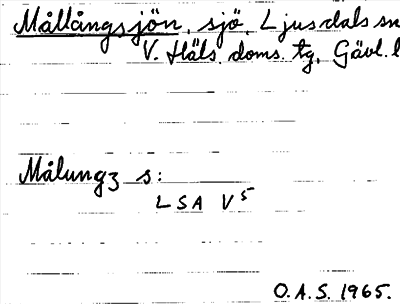 Mållångsjön, sjö, Ljusdals sn
V. Häls. doms. tg, Gävl. l
Målungz s:
LSA V5
O.A.S. 1965.